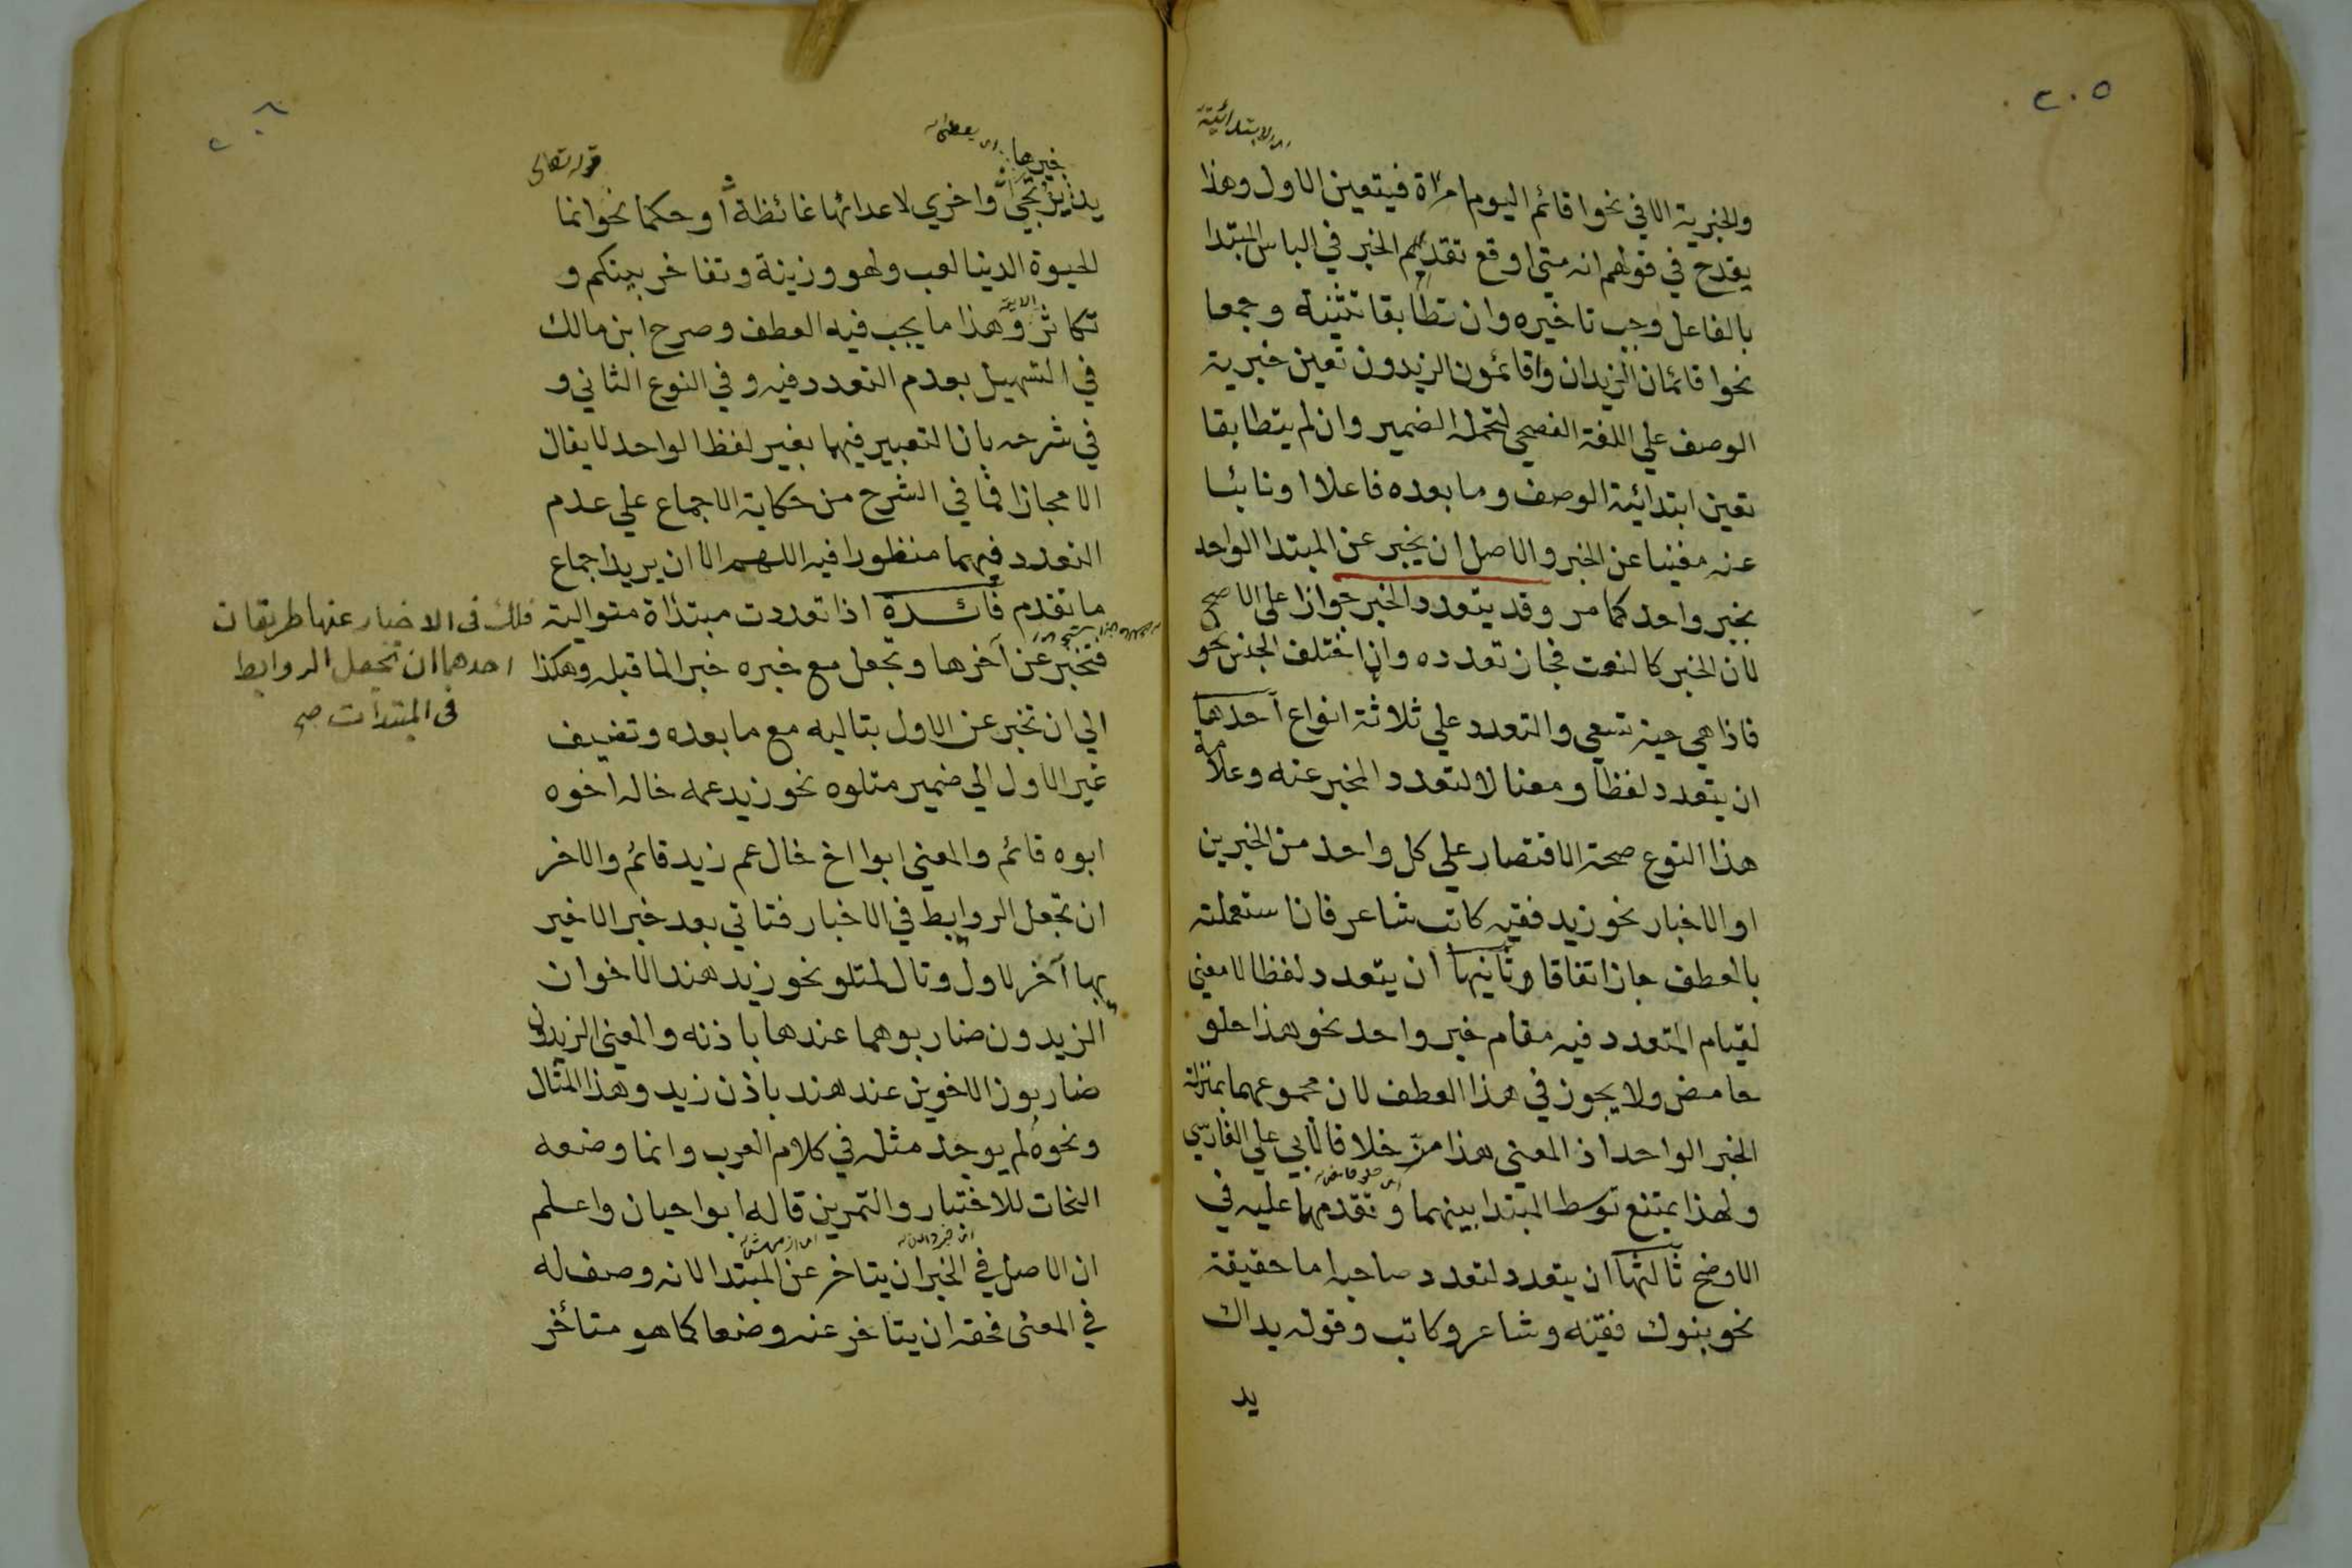 ٢٠٥
اى الابتدائية
والخبرية الا في نحوا قائم اليوم امراة فيتعين الاول وهذا
يقدح في قولهم انه متى اوقع تقديم الخبر في الباس المبتدا
بالفاعل وجب تاخيره وان تطابقا تثنية وجمعا
نحوا قائمان الزيدان واقائمون الزيدون تعين خبرية
الوصف علي اللغة الفصحي لتحمله الضمير وان لم يتطابقا
تعين ابتدائية الوصف وما بعده فاعلا او نائبا
عنه مغنيا عن الخبر والاصل ان يخبر عن المبتدا الواحد
بخبر واحد كما مر وقد يتعدد الخبر جوازا علي الاصح
لان الخبر كالنعت فجاز تعدده وان اختلف الجنس نحو
فاذا هي حية تسعي والتعدد علي ثلاثة انواع احدها
ان يتعدد لفظا ومعنا لا لتعدد المخبر عنه وعلامة
هذا النوع صحة الاقتصار علي كل واحد من الخبرين
او الاخبار نحو زيد فقيه كاتب شاعر فان استعملته
بالعطف جاز اتفاقا وثانيها ان يتعدد لفظا لا معني
لقيام المتعدد فيه مقام خبر واحد نحو هذا حلو
حامض ولا يجوز في هذا العطف لان مجموعهما بمنزلة
الخبر الواحد اذ المعني هذا مز خلافا لابي علي الفارسي
اى حلو حامض
ولهذا يمتنع توسط المبتدا بينهما وتقدمهما عليه في
الاوضح ثالثها ان يتعدد لتعدد صاحبه اما حقيقة
نحو بنوك فقيه وشاعر وكاتب وقوله يداك
يد
٢٠٦
خيرها
قوله تعالى
يد يرتجي واخري لاعدائها غائظة او حكما نحو انما
الحيوة الدنيا لعب ولهو وزينة وتفاخر بينكم و
الاية
تكاثر وهذا ما يجب فيه العطف وصرح ابن مالك
في التسهيل بعدم التعدد فيه وفي النوع الثاني و
في شرحه بان التعبير فيهما بغير لفظ الواحد لا يقال
الا مجازا فما في الشرح من حكاية الاجماع علي عدم
التعدد فيهما منظورا فيه اللهم الا ان يريد اجماع
ما تقدم فائدة اذا تعددت مبتداة متوالية فلك فى الاخبار عنها طريقان
احدهما ان تجعل الروابط
فى المبتدات صح
فتخبر عن آخرها وتجعل مع خبره خبر الما قبله وهكذا
الي ان تخبر عن الاول بتاليه مع ما بعده وتضيف
غير الاول الي ضمير متلوه نحو زيد عمه خاله اخوه
ابوه قائم والمعني ابوا اخ خال عم زيد قائم والاخر
ان تجعل الروابط في الاخبار فتاتي بعد خبر الاخير
بها آخر لاول وتال لمتلو نحو زيد هند الاخوان
الزيدون ضاربوهما عندها باذنه والمعني الزيدون
ضاربون الاخوين عند هند باذن زيد وهذا المثال
ونحوه لم يوجد مثله في كلام العرب وانما وضعه
النحات للاختبار والتمرين قاله ابو احيان واعلم
ان الاصل في الخبر ان يتاخر عن المبتدا لانه وصف له
في المعنى فحقه ان يتاخر عنه وضعا كما هو متأخر